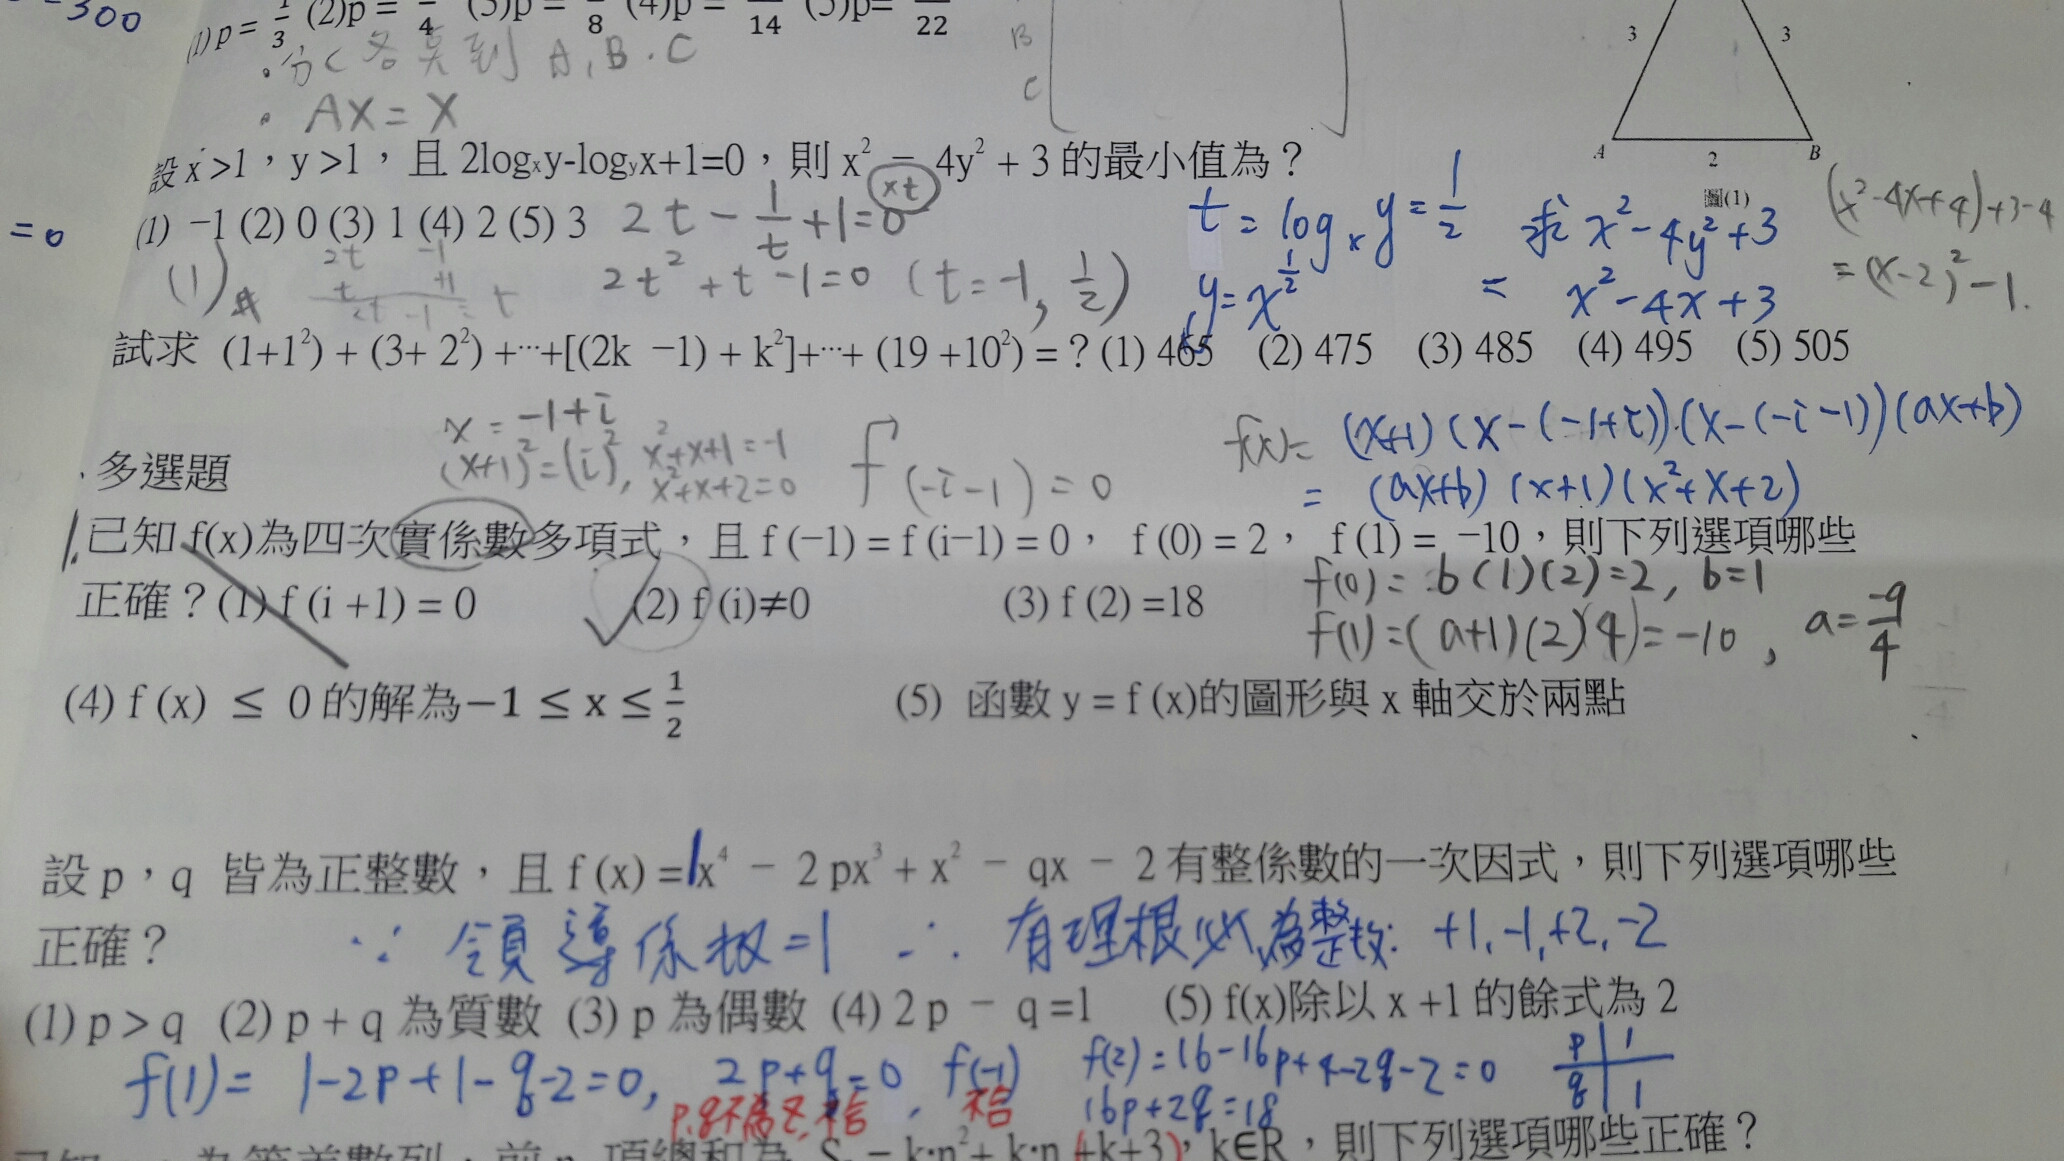 -300
(1) p = 1/3 (2)p = /4 (3)p = /8 (4)p = /14 (5)p= /22
B
C
A,B.C
AX = X
3 3
A 2 B
圖(1)
設 x >1，y >1，且 2logₓy-logᵧx+1=0，則 x² − 4y² + 3 的最小值為？
xt
= 0
(1) −1 (2) 0 (3) 1 (4) 2 (5) 3 2t - 1/t +1=0
t = logₓ y = 1/2 求 x²-4y²+3
(x²-4x+4)+3-4
(1) 2t -1
t +1
2t -1 = t
2t²+t-1=0 (t=-1, 1/2)
y = x^(1/2) = x²-4x+3
=(x-2)²-1.
試求 (1+1²) + (3+ 2²) +⋯+[(2k −1) + k²]+⋯+ (19 +10²) = ? (1) 465 (2) 475 (3) 485 (4) 495 (5) 505
x = -1+i
(x+1)²=(i)², x²+x+1=-1
x²+x+2=0
f(-i-1)=0
f(x)= (x+1)(x-(-1+i))(x-(-i-1))(ax+b)
= (ax+b)(x+1)(x²+x+2)
多選題
1.已知 f(x)為四次實係數多項式，且 f (−1) = f (i−1) = 0， f (0) = 2， f (1) = −10，則下列選項哪些
正確？(1) f (i +1) = 0 (2) f (i)≠0 (3) f (2) =18
f(0) = b(1)(2)=2, b=1
f(1)=(a+1)(2)(4)=-10, a=-9/4
(4) f (x) ≤ 0 的解為−1 ≤ x ≤ 1/2 (5) 函數 y = f (x)的圖形與 x 軸交於兩點
設 p，q 皆為正整數，且 f (x) =1x⁴ − 2 px³ + x² − qx − 2 有整係數的一次因式，則下列選項哪些
正確？ ∵ 領導係数=1 ∴ 有理根必為整数: +1,-1,+2,-2
(1) p > q (2) p + q 為質數 (3) p 為偶數 (4) 2 p − q =1 (5) f(x)除以 x +1 的餘式為 2
f(1)= 1-2p+1-q-2=0, 2p+q=0, f(-1)
不合
f(2)=16-16p+4-2q-2=0
16p+2q=18
p 1
q 1
為等差數列，前 n 項總和為 Sₙ = k·n²+ k·n (+k+3)，k∈R，則下列選項哪些正確？